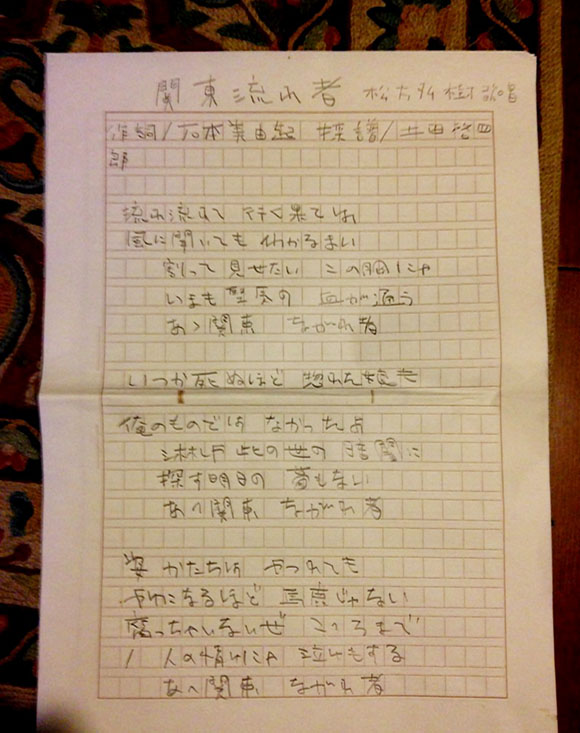 関東流れ者 松方弘樹歌唱
作詞/石本美由起 採譜/井田誠四
郎
流れ流れて 行く果ては
風に聞いても わかるまい
割って見せたい この胸にゃ
いまも堅気の 血が通う
あゝ関東 ながれ者
いつか死ぬほど 惚れた娘も
俺のものでは なかったよ
淋しや此の世の 暗闇に
探す明日の 夢もない
あゝ関東 ながれ者
姿 かたちは やつれても
やけになるほど 馬鹿じゃない
腐っちゃいないぜ こゝろまで
人の情けにゃ 泣きもする
あゝ関東 ながれ者